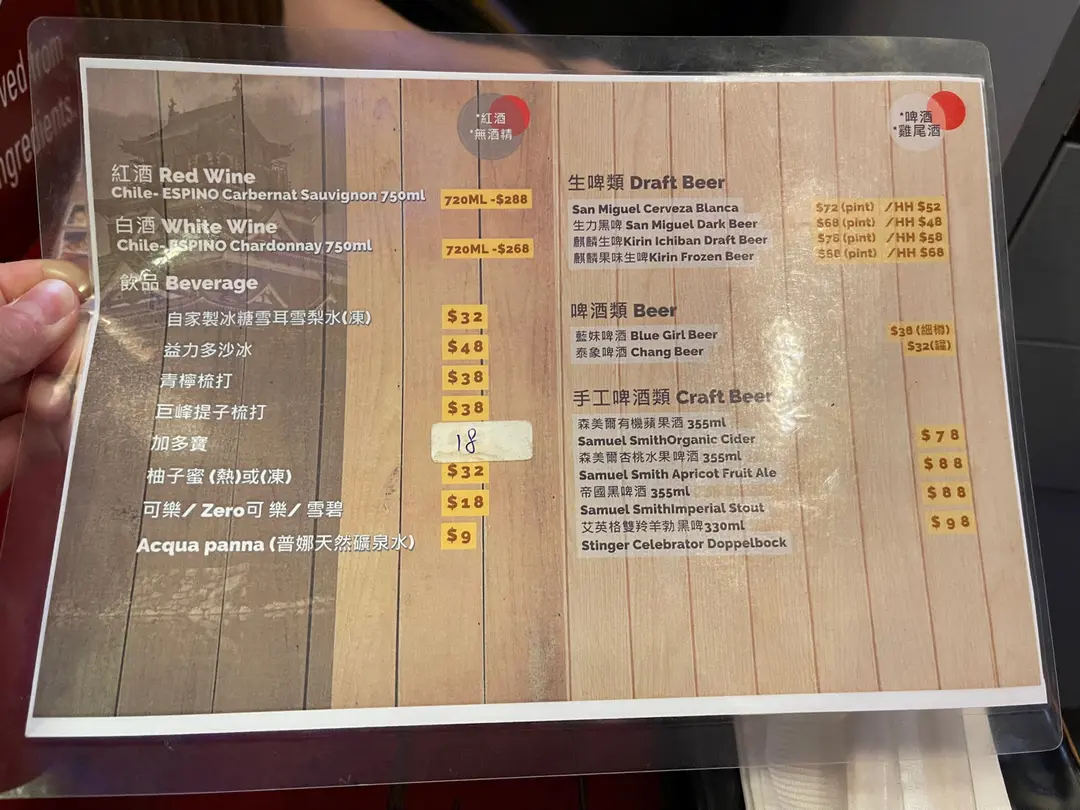 ved from
ngredients.
*紅酒
*無酒精
紅酒 Red Wine
Chile- ESPINO Carbernat Sauvignon 750ml 720ML -$288
白酒 White Wine
Chile- ESPINO Chardonnay 750ml 720ML -$268
飲品 Beverage
自家製冰糖雪耳雪梨水(凍) $32
益力多沙冰 $48
青檸梳打 $38
巨峰提子梳打 $38
加多寶 18
柚子蜜 (熱)或(凍) $32
可樂/ Zero可 樂/ 雪碧 $18
Acqua panna (普娜天然礦泉水) $9
*啤酒
*雞尾酒
生啤類 Draft Beer
San Miguel Cerveza Blanca $72 (pint) /HH $52
生力黑啤 San Miguel Dark Beer $68 (pint) /HH $48
麒麟生啤Kirin Ichiban Draft Beer $78 (pint) /HH $58
麒麟果味生啤Kirin Frozen Beer (pint) /HH $68
啤酒類 Beer
藍妹啤酒 Blue Girl Beer $38 (細樽)
泰象啤酒 Chang Beer $32(罐)
手工啤酒類 Craft Beer
森美爾有機蘋果酒 355ml
Samuel SmithOrganic Cider $78
森美爾杏桃水果啤酒 355ml
Samuel Smith Apricot Fruit Ale $88
帝國黑啤酒 355ml
Samuel SmithImperial Stout $88
艾英格雙羚羊勃黑啤330ml
Stinger Celebrator Doppelbock $98